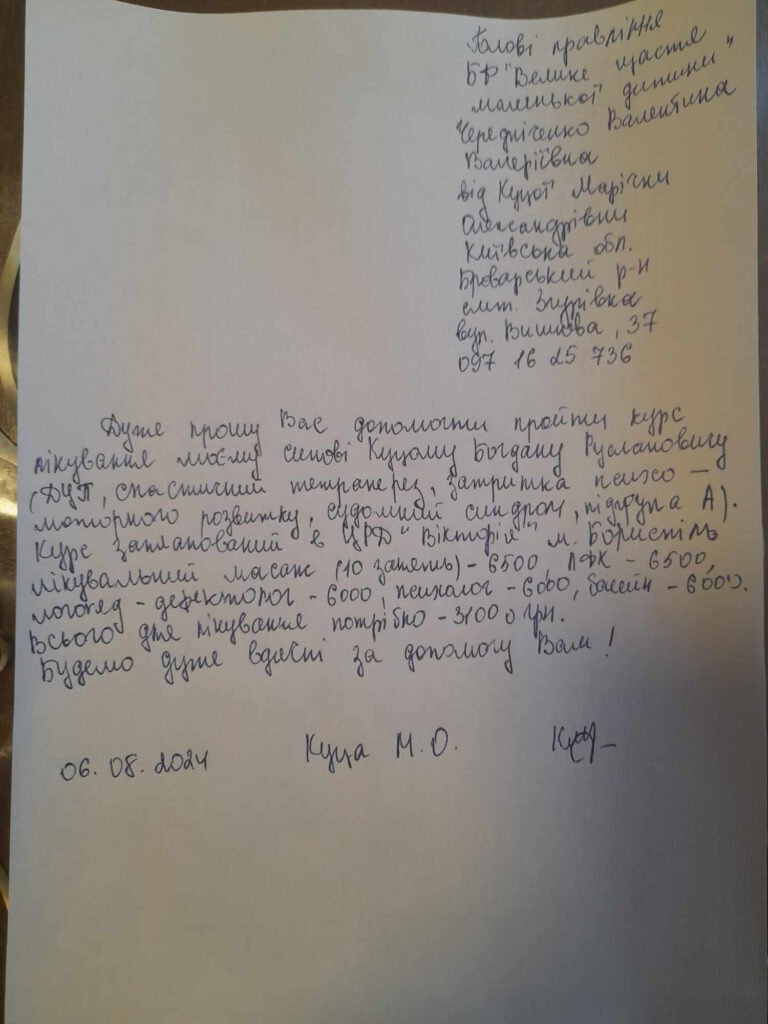 Голові правління
БФ "Велике щастя
маленької дитини"
Чередніченко Валентина
Валеріївна
від Куцої Марічки
Олександрівни
Київська обл.
Броварський р-н
смт. Згурівка
вул. Вишнева, 37
097 16 25 736
Дуже прошу Вас допомогти пройти курс
лікування моєму синові Куцому Богдану Руслановичу
(ДЦП, спастичний тетрапарез, затримка психо-
моторного розвитку, судомний синдром, підгрупа А).
Курс запланований в ЦРД "Вікторія" м. Бориспіль
лікувальний масаж (10 занять) - 6500, ЛФК - 6500,
логопед - дефектолог - 6000, психолог - 6000, басейн - 6000.
Всього для лікування потрібно - 31000 грн.
Будемо дуже вдячні за допомогу Вам!
06.08.2024 Куца М.О.